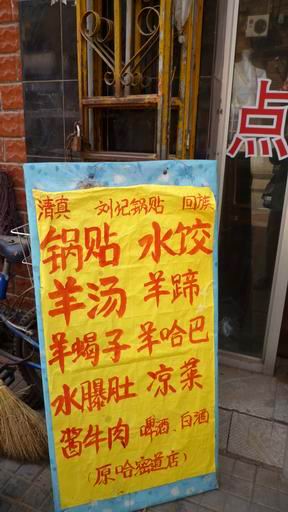 清真 刘记锅贴 回族
锅贴 水饺
羊汤 羊蹄
羊蝎子 羊哈巴
水爆肚 凉菜
酱牛肉 啤酒、白酒
(原哈密道店)
点